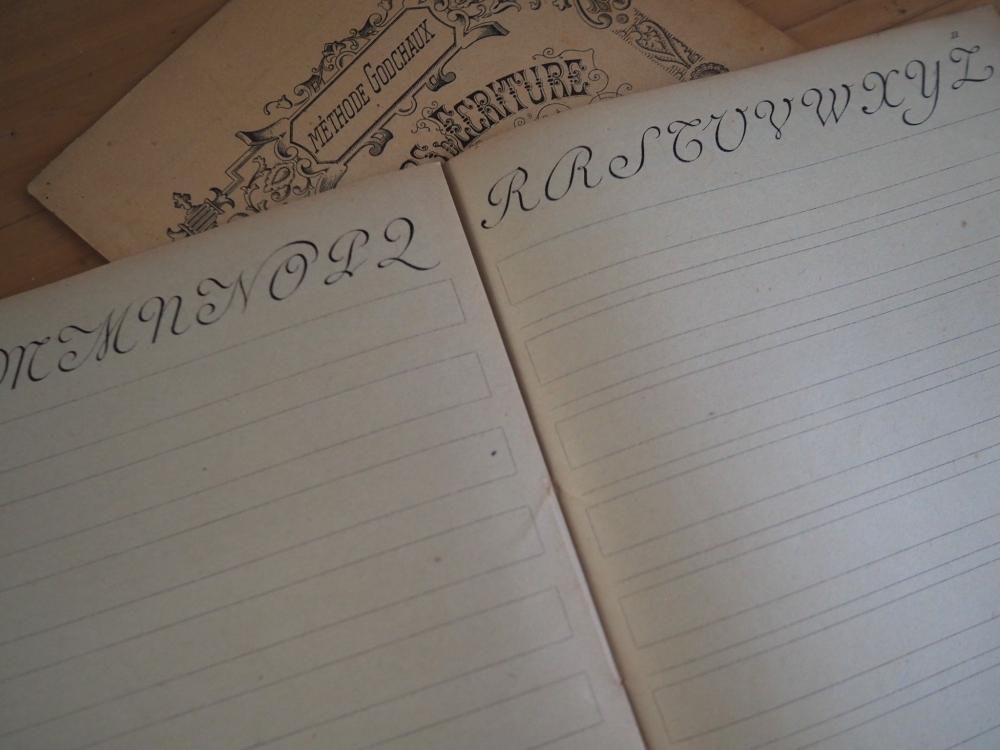 MÉTHODE GODCHAUX
ECRITURE
M M N N O P Q
R R S T U V W X Y Z